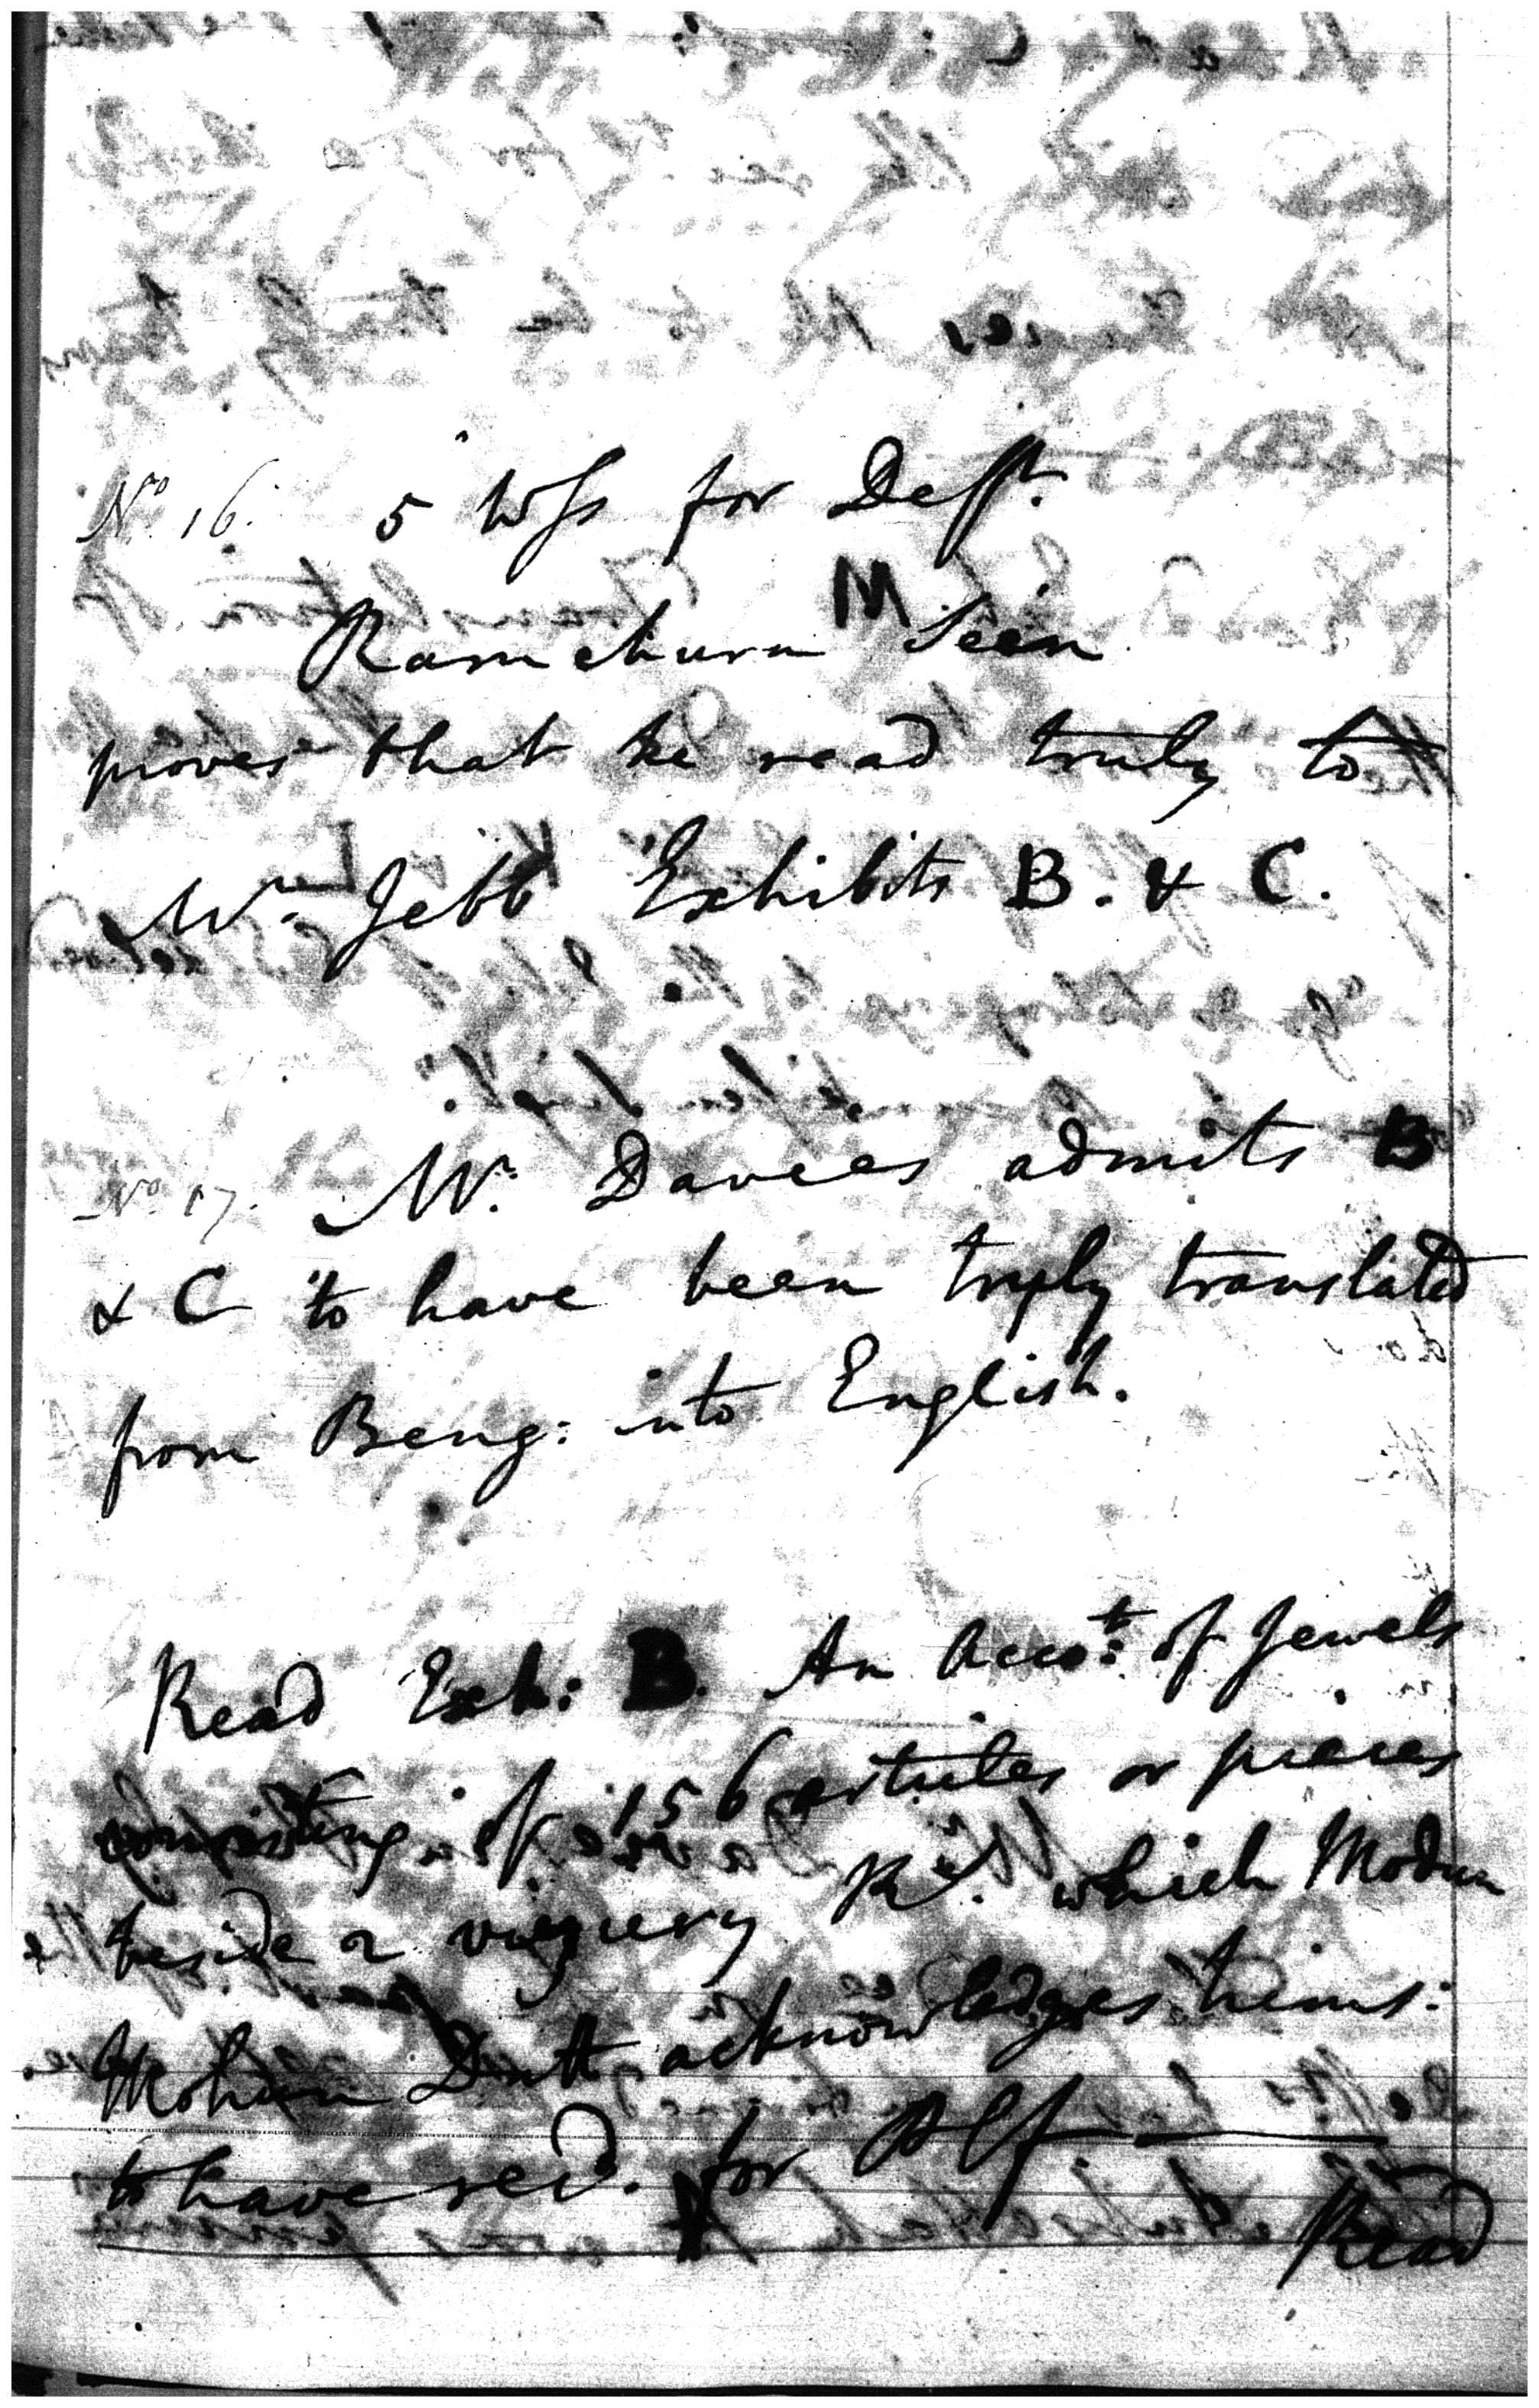 No. 16. 5 Wss for Defft.
Ramchurn Seen
proves that he read truly to
Mr. Jebb Exhibits B. & C.
No. 17. Mr. Davees admits B
& C to have been truly translated
from Beng: into English.
Read Exh: B. An Accot: of Jewels
consisting of 156 articles or pieces
beside a which Modun
Mohun Dutt acknowledges hims:
to have recd. for Plf.
Read